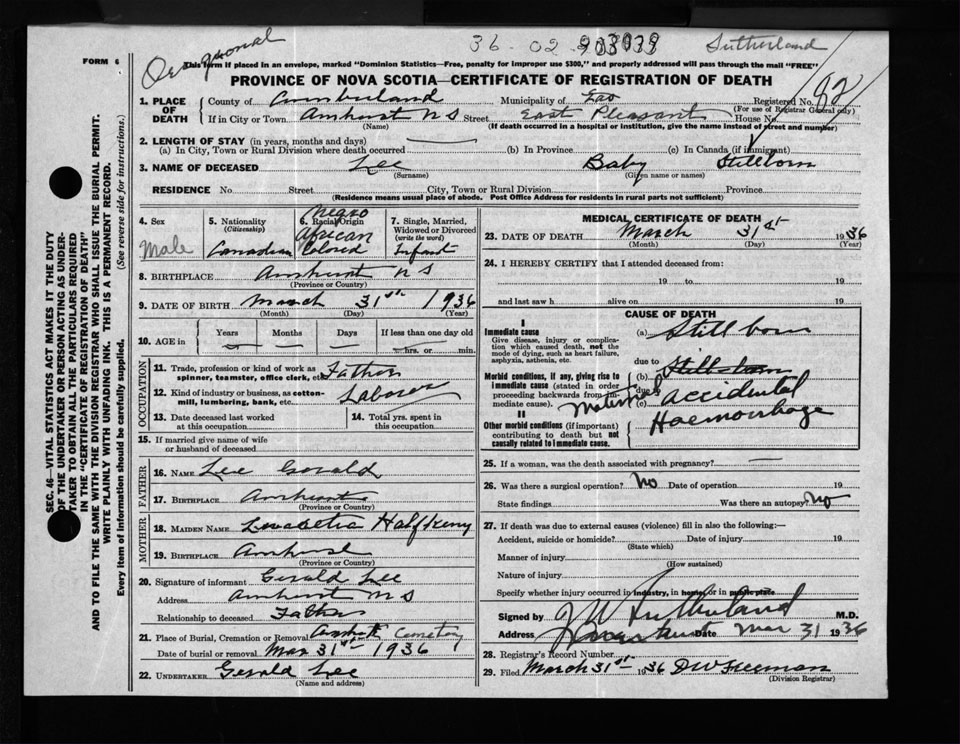 36-02 903039 Sutherland
FORM 6
This form if placed in an envelope, marked "Dominion Statistics—Free, penalty for improper use $300," and properly addressed will pass through the mail "FREE"
PROVINCE OF NOVA SCOTIA—CERTIFICATE OF REGISTRATION OF DEATH
1. PLACE OF DEATH
County of Cumberland Municipality of Registered No. 82
(For use of Registrar General only)
If in City or Town Amherst N S Street East Pleasant House No.
(Name) (If death occurred in a hospital or institution, give the name instead of street and number)
2. LENGTH OF STAY (in years, months and days)
(a) In City, Town or Rural Division where death occurred (b) In Province (c) In Canada (if immigrant)
3. NAME OF DECEASED Lee Baby Stillborn
(Surname) (Given name or names)
RESIDENCE No. Street City, Town or Rural Division Province
(Residence means usual place of abode. Post Office Address for residents in rural parts not sufficient)
4. Sex Male
5. Nationality (Citizenship) Canadian
6. Racial Origin Negro African Colored
7. Single, Married, Widowed or Divorced (write the word) Infant
8. BIRTHPLACE Amherst N S
(Province or Country)
9. DATE OF BIRTH March 31st 1936
(Month) (Day) (Year)
10. AGE in Years Months Days If less than one day old
hrs. or min.
OCCUPATION
11. Trade, profession or kind of work as spinner, teamster, office clerk, etc. Father
12. Kind of industry or business, as cotton-mill, lumbering, bank, etc. Laborer
13. Date deceased last worked at this occupation
14. Total yrs. spent in this occupation
15. If married give name of wife or husband of deceased
FATHER
16. NAME Lee Gerald
17. BIRTHPLACE Amherst
(Province or Country)
MOTHER
18. MAIDEN NAME Halfkenny
19. BIRTHPLACE Amherst
(Province or Country)
20. Signature of informant Gerald Lee
Address Amherst N S
Relationship to deceased Father
21. Place of Burial, Cremation or Removal Cemetery
Date of burial or removal Mar 31st 1936
22. UNDERTAKER Gerald Lee
(Name and address)
MEDICAL CERTIFICATE OF DEATH
23. DATE OF DEATH March 31st 1936
(Month) (Day) (Year)
24. I HEREBY CERTIFY that I attended deceased from:
19 to 19
and last saw h alive on 19
CAUSE OF DEATH
I
Immediate cause
Give disease, injury or complication which caused death, not the mode of dying, such as heart failure, asphyxia, asthenia, etc.
(a) Still born
due to
Morbid conditions, if any, giving rise to immediate cause (stated in order proceeding backwards from immediate cause).
(b) Still born
due to
(c) Maternal accidental
II
Other morbid conditions (if important) contributing to death but not causally related to immediate cause.
Haemorrhage
25. If a woman, was the death associated with pregnancy?
26. Was there a surgical operation? No Date of operation 19
State findings Was there an autopsy? No
27. If death was due to external causes (violence) fill in also the following:—
Accident, suicide or homicide? Date of injury 19
(State which)
Manner of injury
(How sustained)
Nature of injury
Specify whether injury occurred in industry, in home, or in public place
Signed by Sutherland M.D.
Address Amherst Date Mar 31 1936
28. Registrar's Record Number
29. Filed March 31st 1936 D W Freeman
(Division Registrar)
SEC. 46—VITAL STATISTICS ACT MAKES IT THE DUTY
OF THE UNDERTAKER OR PERSON ACTING AS UNDER-
TAKER TO OBTAIN ALL THE PARTICULARS REQUIRED
IN THE "CERTIFICATE OF REGISTRATION OF DEATH"
AND TO FILE THE SAME WITH THE DIVISION REGISTRAR WHO SHALL ISSUE THE BURIAL PERMIT.
WRITE PLAINLY WITH UNFADING INK. THIS IS A PERMANENT RECORD.
Every item of information should be carefully supplied. (See reverse side for instructions.)